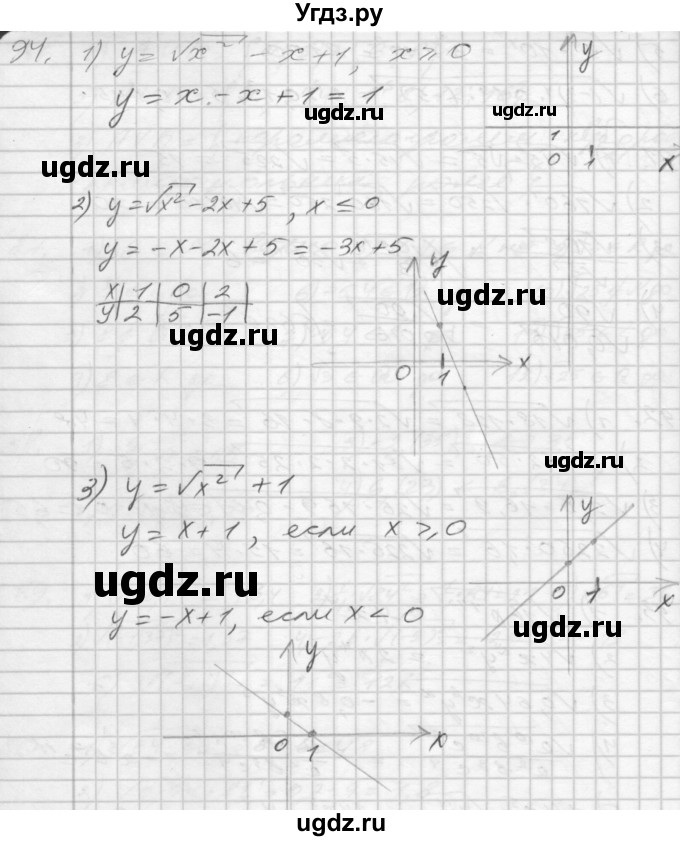 Угдз.ру
94. 1) y = √x² - x + 1, x ⩾ 0
y = x - x + 1 = 1
ugdz.ru
ugdz.ru
y
1
0 1 x
ugdz.ru
2) y = √x² - 2x + 5, x ≤ 0
y = -x - 2x + 5 = -3x + 5
x | 1 | 0 | 2
y | 2 | 5 | -1
ugdz.ru
y
ugdz.ru
0 1 x
ugdz.ru
3) y = √x² + 1
y = x + 1, если x ⩾ 0
y
0 1 x
ugdz.ru
y = -x + 1, если x < 0
ugdz.ru
y
0 1 x
ugdz.ru